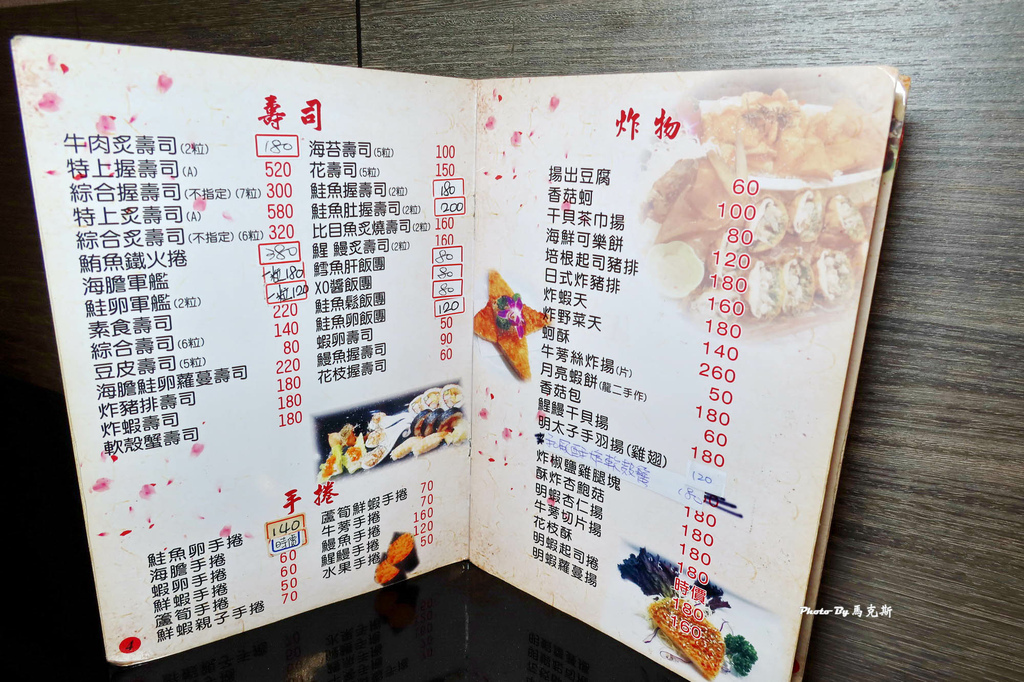 壽司
牛肉炙壽司(2粒) 180
特上握壽司(A) 520
綜合握壽司(不指定)(7粒) 300
特上炙壽司(A) 580
綜合炙壽司(不指定)(6粒) 320
鮪魚鐵火捲 380
海膽軍艦 一粒180
鮭卵軍艦(2粒) 一粒120
素食壽司 220
綜合壽司(6粒) 140
豆皮壽司(5粒) 80
海膽鮭卵蘿蔓壽司 220
炸豬排壽司 180
炸蝦壽司 180
軟殼蟹壽司 180
海苔壽司(5粒) 100
花壽司(5粒) 150
鮭魚握壽司(2粒) 180
鮭魚肚握壽司(2粒) 200
比目魚炙燒壽司(2粒) 160
鯹鰻炙壽司(2粒) 160
鱈魚肝飯團 80
XO醬飯團 80
鮭魚鬆飯團 80
鮭魚卵飯團 120
蝦卵壽司 50
鰻魚握壽司 90
花枝握壽司 60
手捲
鮭魚卵手捲 140
海膽手捲 時價
蝦卵手捲 60
鮮蝦手捲 60
蘆筍手捲 50
鮮蝦親子手捲 70
蘆筍鮮蝦手捲 70
牛蒡手捲 70
鰻魚手捲 160
鯹鰻手捲 120
水果手捲 50
4
炸物
揚出豆腐 60
香菇蚵 100
干貝茶巾揚 80
海鮮可樂餅 120
培根起司豬排 180
日式炸豬排 160
炸蝦天 180
炸野菜天 140
蚵酥 260
牛蒡絲炸揚(片) 50
月亮蝦餅(龍二手作) 180
香菇包 60
鯹鰻干貝揚 180
明太子手羽揚(雞翅) 120
180
炸椒鹽雞腿塊 180
酥炸杏鮑菇 180
明蝦杏仁揚 180
牛蒡切片揚 180
花枝酥 時價
明蝦起司捲 180
明蝦蘿蔓揚 160
Photo By 馬克斯